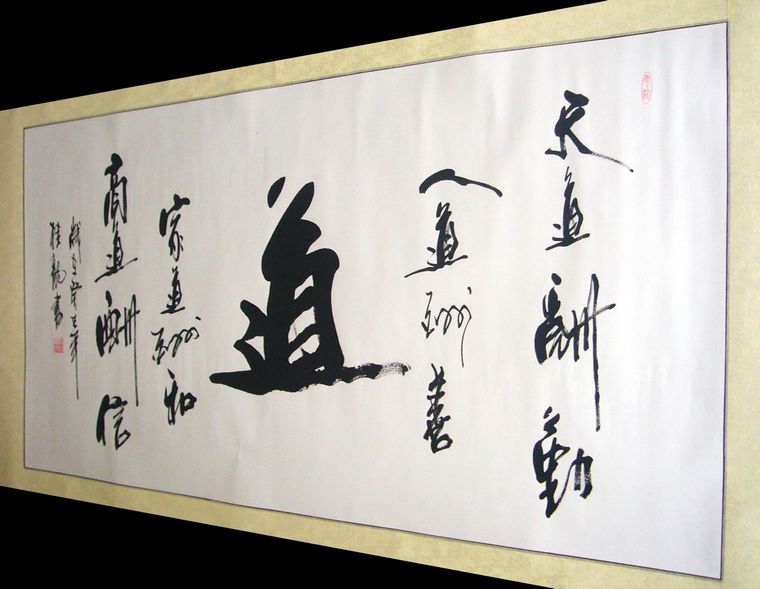 天道酬勤
人道酬善
道
家道酬和
商道酬信
桂龙书